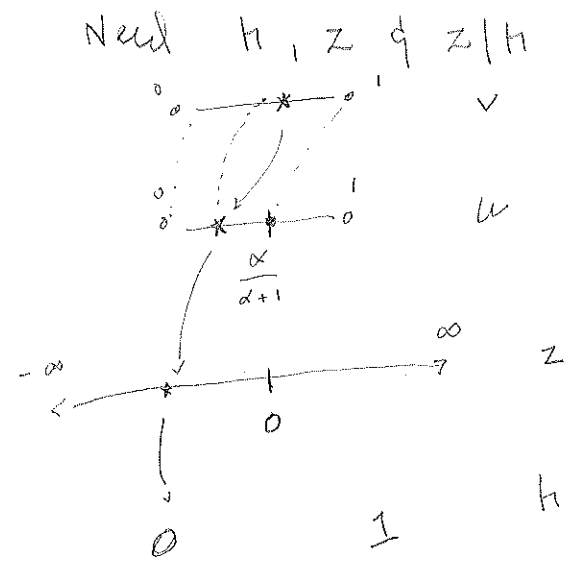 Need h, z & z|h
0 1 v
0 1 u
α/α+1
-∞ ∞ z
0
0 1 h